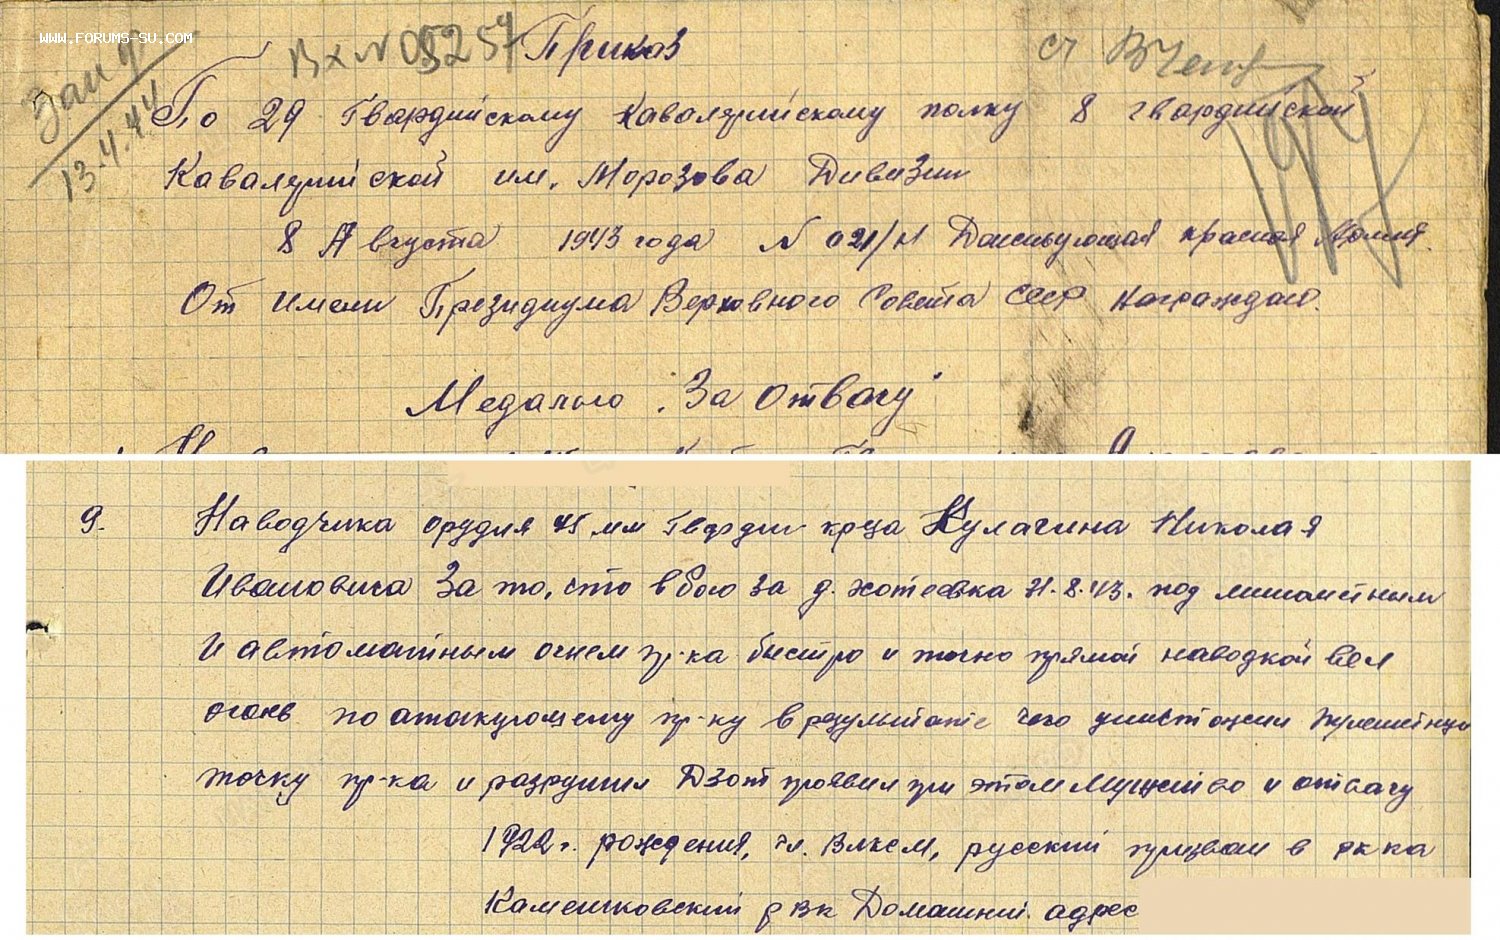 www.forums-su.com
Вх N 05257 Приказ
13.4.44
По 29 Гвардийскому Кавалерийскому полку 8 гвардийской
Кавалерийской им. Морозова Дивизии
8 Августа 1943 года N 021/н Действующая красная Армия.
От имени Президиума Верховного Совета СССР Награждаю.
Медалью "За отвагу"
9. Наводчика орудия 45 мм Гвардии кр-ца Кулагина Николая
Ивановича За то, что в бою за д. Хотеевка 4.8.43. под
и автоматным огнем пр-ка быстро и точно прямой наводкой вел
огонь по атакующему пр-ку в результате чего уничтожил пулеметную
точку пр-ка и разрушил Дзот проявил при этом Мужество и отвагу
1922 г. рождения, чл. Влксм, русский призван в ркка
Камешковский рвк Домашний адрес